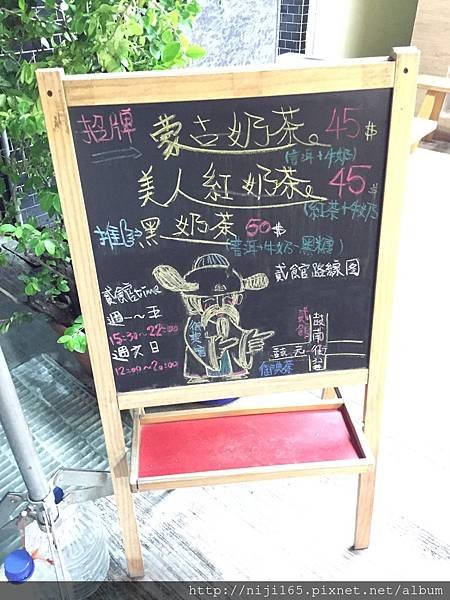 招牌 蒙古奶茶。45$
(普洱+牛奶)
美人紅奶茶。45$
(紅茶+牛奶)
推 黑奶茶 50$
(普洱+牛奶 黑糖)
貳館路線圖
貳館time
週一~五
15:30~22:00
週六日
12:00~20:00
貳館
http://niji165.pixnet.net/album